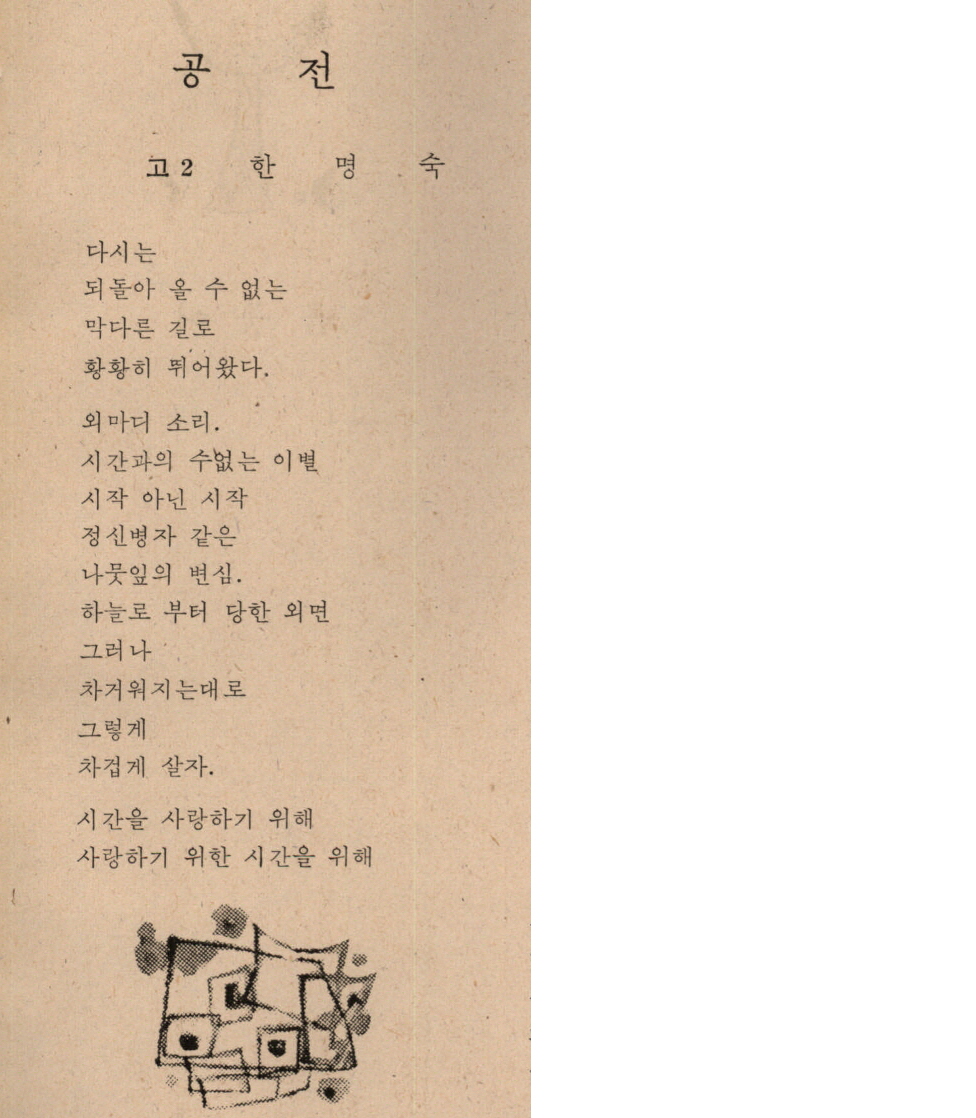 공 전
고2 한 명 숙
다시는
되돌아 올 수 없는
막다른 길로
황황히 뛰어왔다.
외마디 소리.
시간과의 수없는 이별
시작 아닌 시작
정신병자 같은
나뭇잎의 변심.
하늘로 부터 당한 외면
그러나
차거워지는대로
그렇게
차겁게 살자.
시간을 사랑하기 위해
사랑하기 위한 시간을 위해